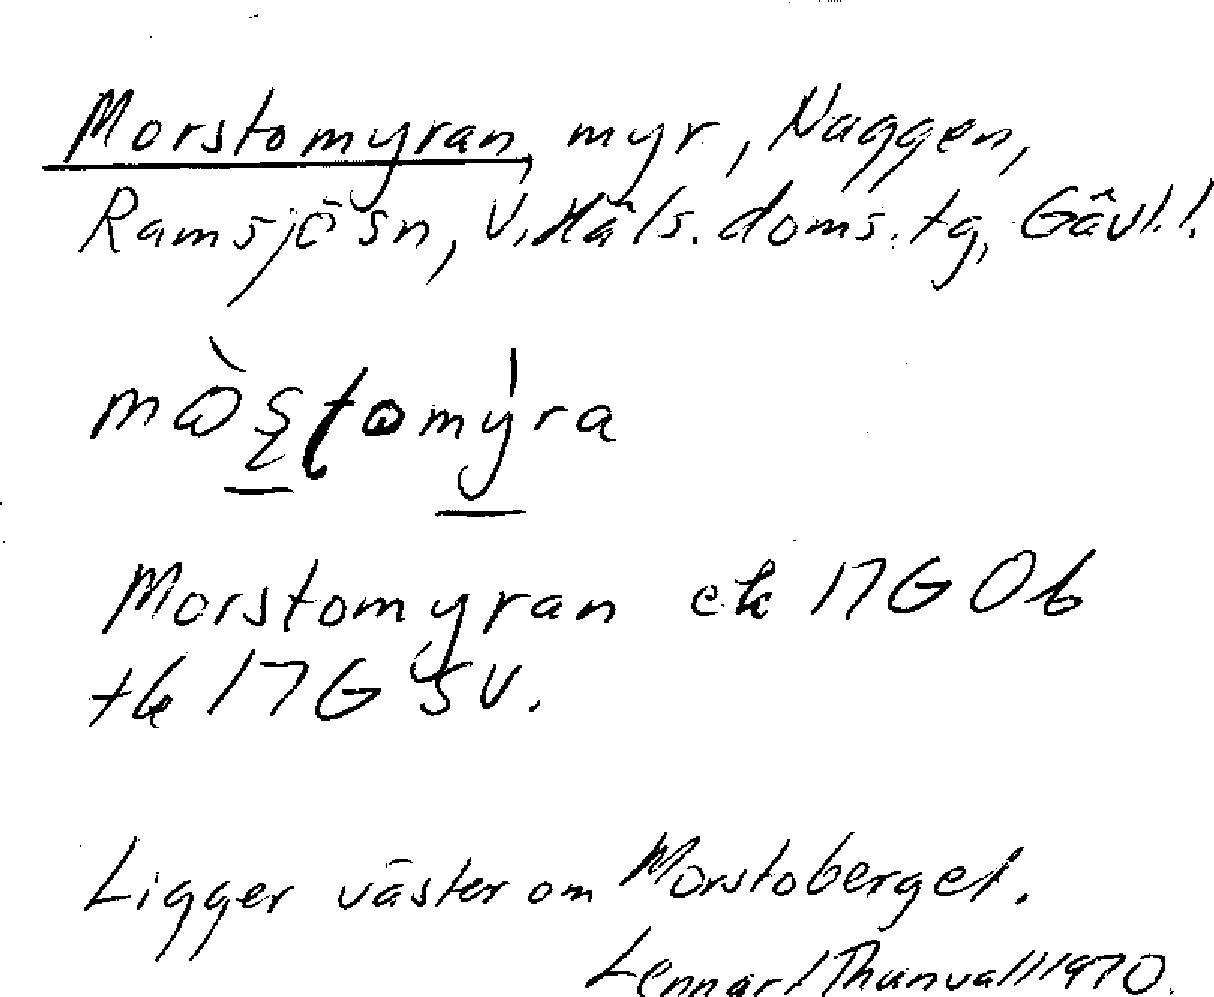 Morstomyran, myr, Naggen,
Ramsjö sn, V. Häls. doms. tg, Gävl. l.
mòʂtomy̍ra
Morstomyran ek 17G 0b
tk 17G SV.
Ligger väster om Morstoberget.
Lennart Thunvall 1970.